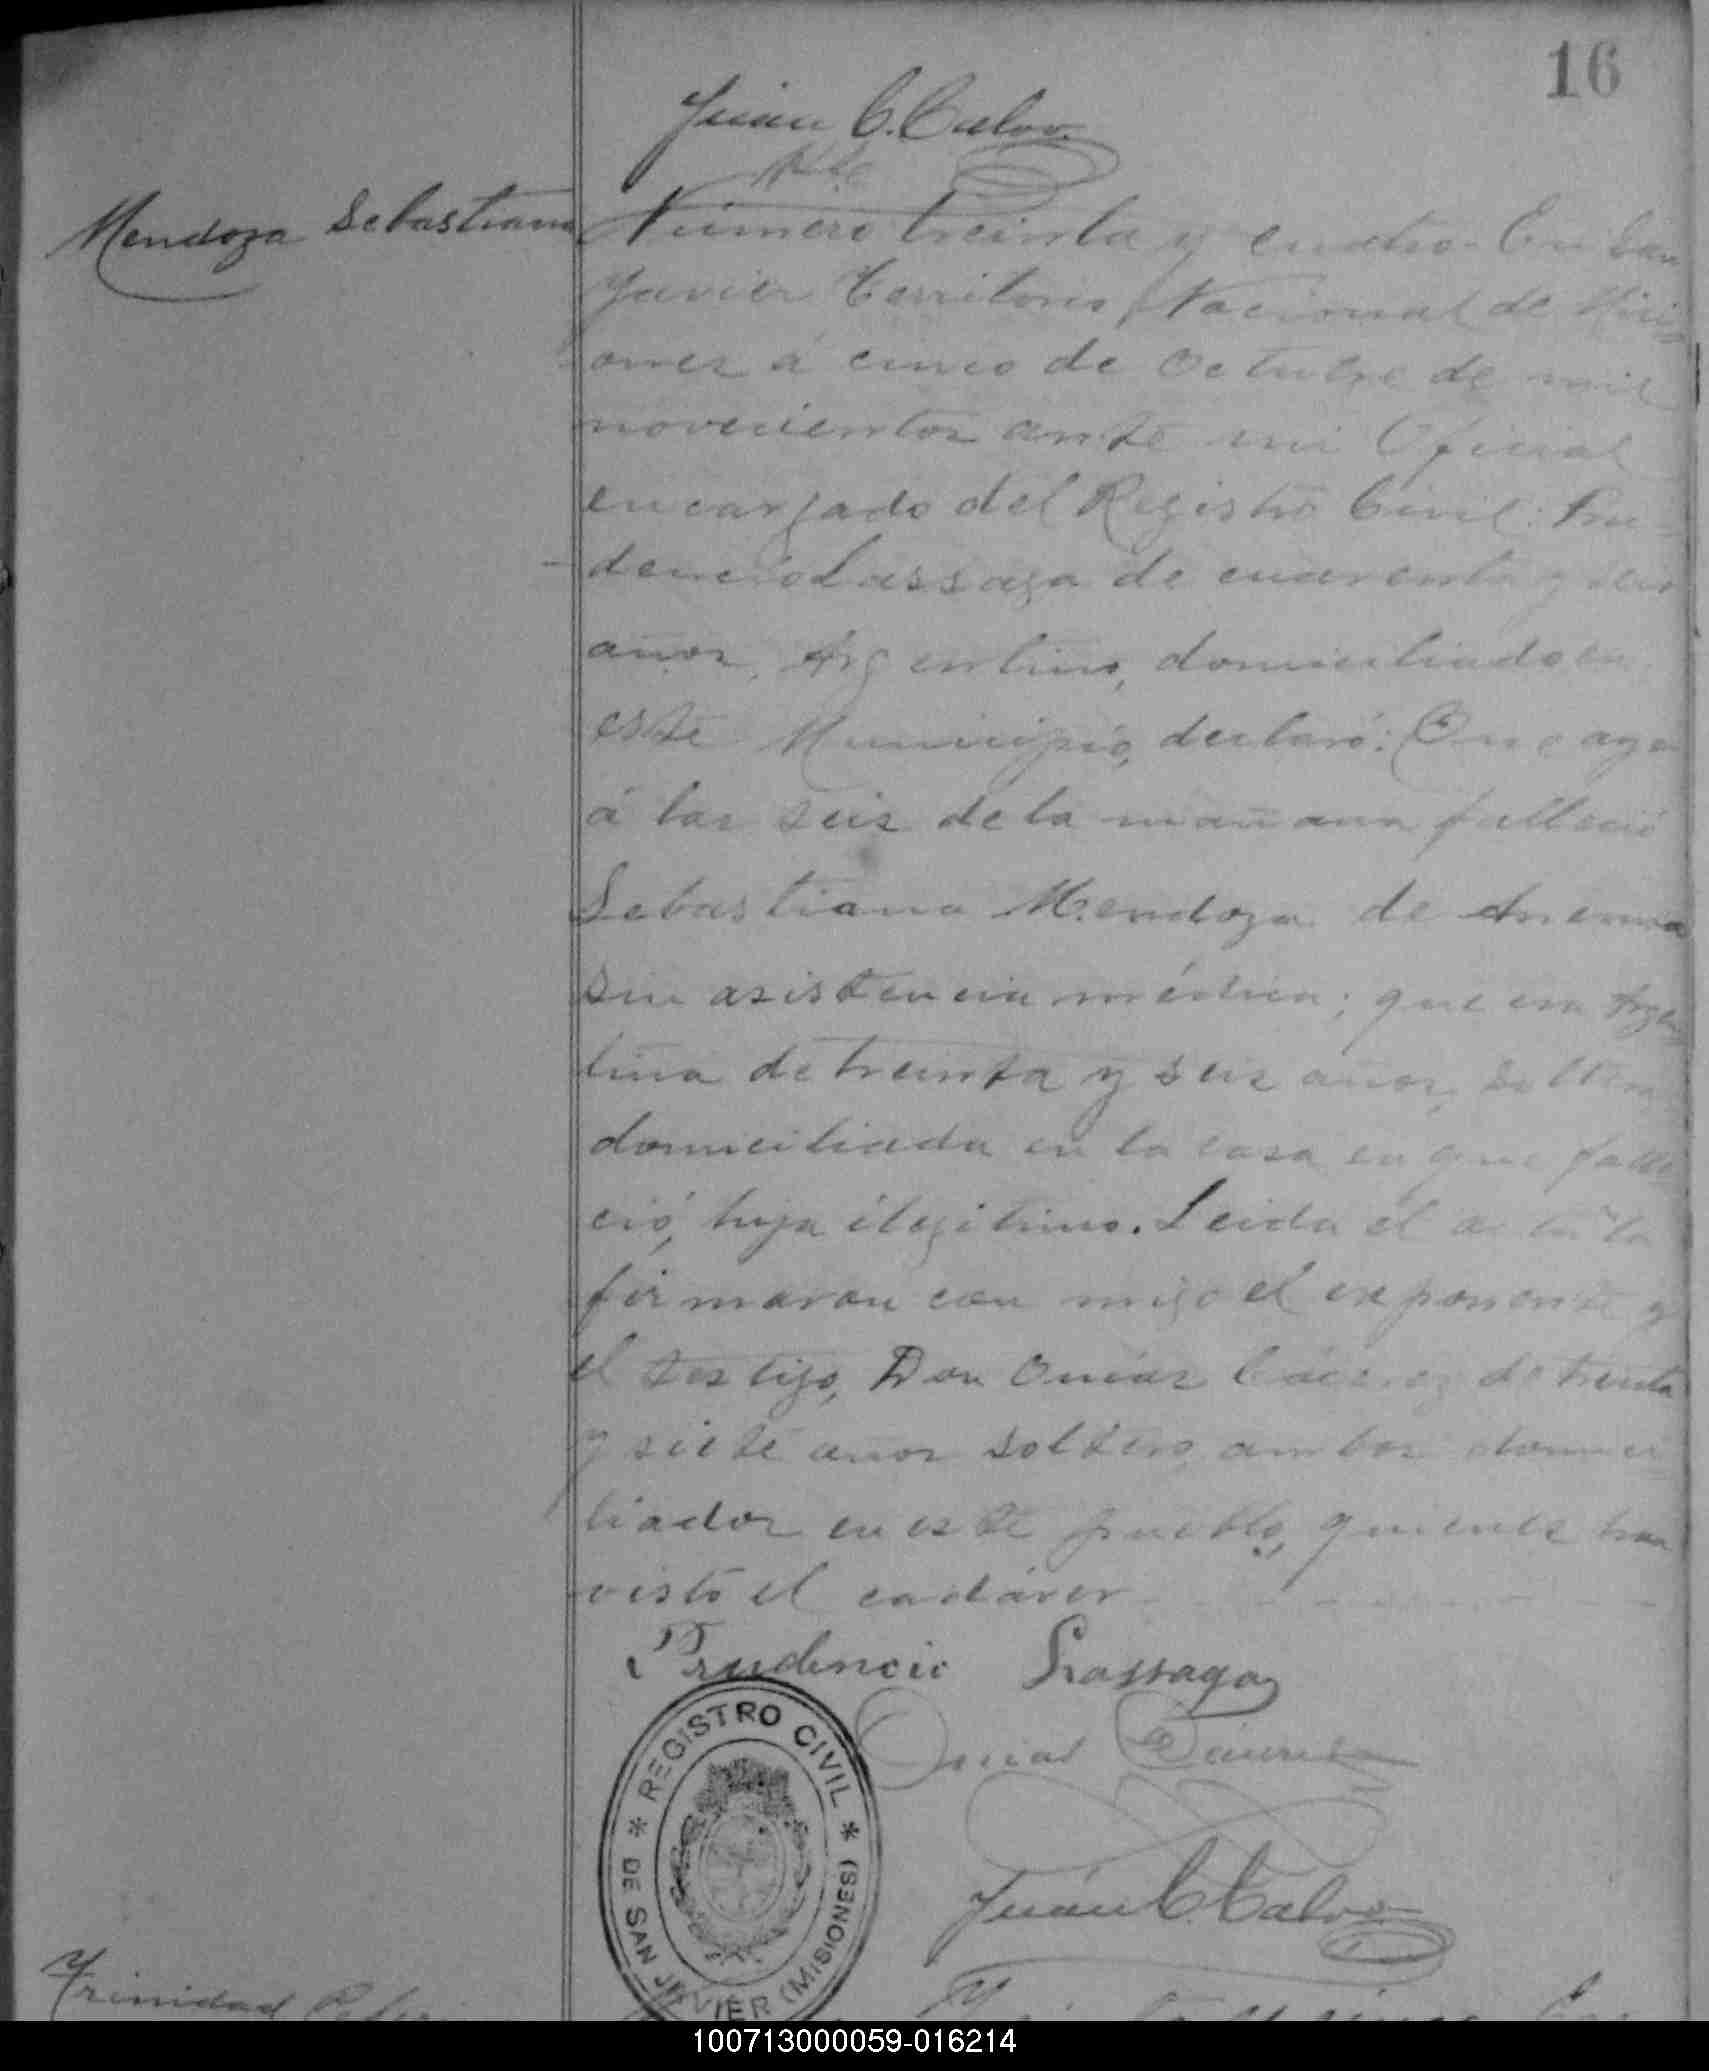 16
Juan C. Calvo
Mendoza Sebastiana
Número treinta y cuatro. En San
Javier Territorio Nacional de Misi=
ones á cinco de Octubre de mil
novecientos ante mi Oficial
encargado del Registro Civil: Pru=
dencio Lassaga de cuarenta y seis
años, Argentino, domiciliado en
este Municipio, declaró: Que ayer
á las seis de la mañana falleció
Sebastiana Mendoza de Anemia
sin asistencia médica; que era Argen=
tina de treinta y seis años, soltera
domiciliada en la casa en que falle=
ció, hija ilegitima. Leida el acta la
firmaron con migo el exponente y
el testigo, Don Omár Cáceres de treinta
y siete años soltero, ambos domici=
liados en este pueblo, quienes han
visto el cadáver
Prudencio Lassaga
Omar
REGISTRO CIVIL
DE SAN JAVIER (MISIONES)
Juan C. Calvo
Trinidad
100713000059-016214